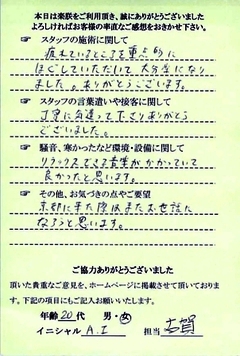 本日は楽朕をご利用頂き、誠にありがとうございました
よろしければお客様の率直なご感想をおきかせ下さい。
☞ スタッフの施術に関して
疲れているところを重点的に
ほぐしていただいて大分楽になり
ました。ありがとうございます。
☞ スタッフの言葉遣いや接客に関して
丁寧に気遣って下さりありがとう
ございました。
☞ 騒音、寒かったなど環境・設備に関して
リラックスできる音楽がかかっていて
良かったと思います。
☞ その他、お気づきの点やご要望
京都に来た際はまたお世話に
なろうと思います。
ご協力ありがとうございました
頂いた貴重なご意見を、ホームページに掲載させて頂いております。
下記の項目にもご記入お願いいたします。
年齢 20 代 男・女
イニシャル A.I 担当 古賀